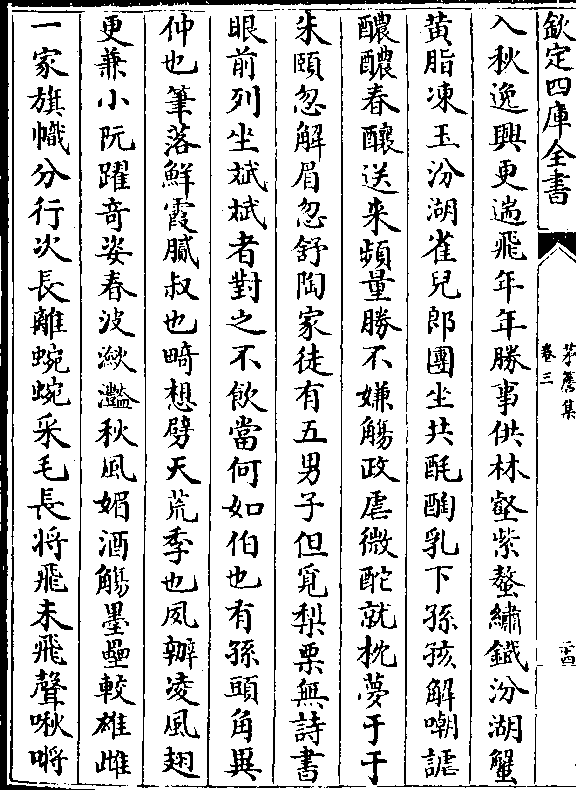 欽定四庫全書
茅簷集
卷三
二十四
入秋逸興更遄飛年年勝事供林壑紫螯繡鐡汾湖蟹
黄脂凍玉汾湖雀兒郎團坐共酕醄乳下孫孩解嘲謔
醲醲春釀送来頻量勝不嫌觴政虐微酡就枕夢于于
朱頤忽解眉忽舒陶家徒有五男子但覓梨栗無詩書
眼前列坐斌斌者對之不飲當何如伯也有孫頭角異
仲也筆落鮮霞膩叔也畸想劈天荒季也夙擀凌風翅
更兼小阮躍竒姿春波瀲灩秋風媚酒觴墨壘較雄雌
一家旗幟分行次長離蜿蜿采毛長将飛未飛聲啾嘝